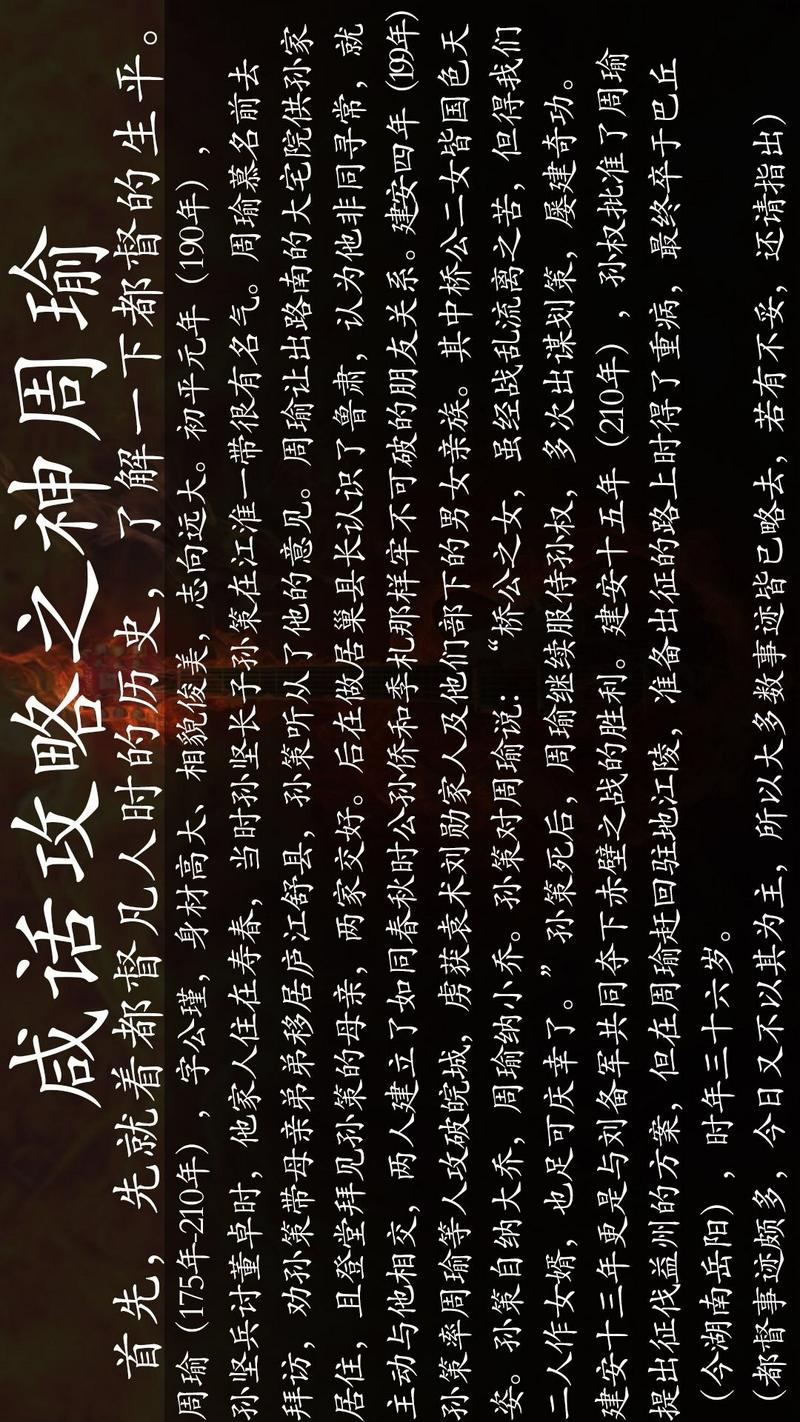 咸话攻略之神周瑜
首先，先就着都督凡人时的历史，了解一下都督的生平。
周瑜（175年-210年），字公瑾，身材高大、相貌俊美，志向远大。初平元年（190年），
孙坚兵讨董卓时，他家人住在寿春，当时孙坚长子孙策在江淮一带很有名气。周瑜慕名前去
拜访，劝孙策带母亲弟弟移居庐江舒县，孙策听从了他的意见。周瑜让出路南的大宅院供孙家
居住，且登堂拜见孙策的母亲，两家交好。后在做居巢县长认识了鲁肃，认为他非同寻常，就
主动与他相交，两人建立了如同春秋时公孙侨和季札那样牢不可破的朋友关系。建安四年（199年）
孙策率周瑜等人攻破皖城，虏获袁术刘勋家人及他们部下的男女亲族。其中桥公二女皆国色天
姿。孙策自纳大乔，周瑜纳小乔。孙策对周瑜说：“桥公之女，虽经战乱流离之苦，但得我们
二人作女婿，也足可庆幸了。”孙策死后，周瑜继续服侍孙权，多次出谋划策，屡建奇功。
建安十三年更是与刘备军共同夺下赤壁之战的胜利。建安十五年（210年），孙权批准了周瑜
提出征伐益州的方案，但在周瑜赶回驻地江陵，准备出征的路上时得了重病，最终卒于巴丘
（今湖南岳阳），时年三十六岁。
（都督事迹颇多，今日又不以其为主，所以大多数事迹皆已略去，若有不妥，还请指出）